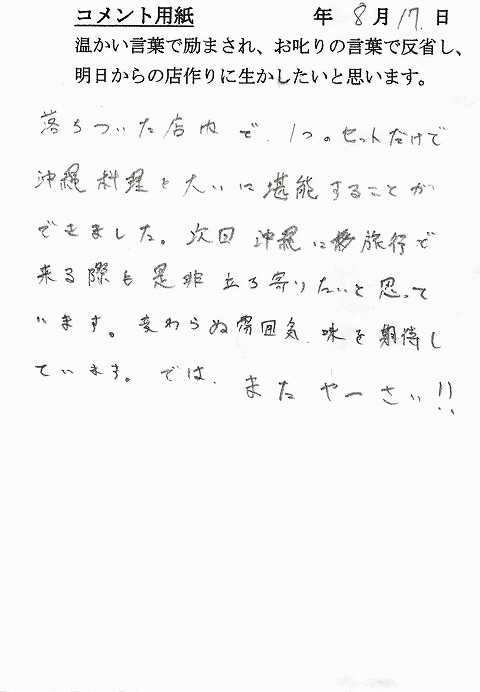 コメント用紙 年 8月17日
温かい言葉で励まされ、お叱りの言葉で反省し、
明日からの店作りに生かしたいと思います。
落ちついた店内で、1つのセットだけで
沖縄料理を大いに堪能することが
できました。次回沖縄に旅行で
来る際も是非立ち寄りたいと思って
います。変わらぬ雰囲気、味を期待し
ています。では、またやーさい!!